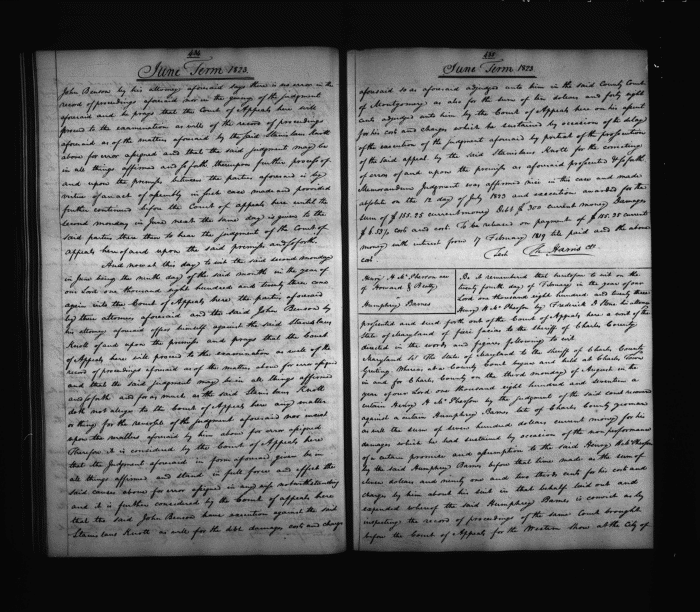 434
June Term 1823.
John Benson by his attorney aforesaid says there is no error in the
record of proceedings aforesaid nor in the giving of the judgment
aforesaid and he prays that the Court of Appeals here will
proceed to the examination as well of the record of proceedings
aforesaid as of the matters aforesaid by the said Stanislaus Knott
above for error assigned and that the said judgment may be
in all things affirmed and so forth thereupon further process of
and upon the premises between the parties aforesaid is by
virtue of an act of assembly in such case made and provided
further continued before the Court of appeals here until the
second monday in June next the same day is given to the
said parties there then to hear the judgment of the Court of
appeals here of and upon the said premises and so forth.
And now at this day to wit the said second monday
in June being the ninth day of the said month in the year of
our Lord one thousand eight hundred and twenty three come
again into this Court of Appeals here, the parties aforesaid
by their attornies aforesaid and the said John Benson by
his attorney aforesaid offers himself against the said Stanislaus
Knott of and upon the premises and prays that the Court
of Appeals here will proceed to the examination as well of the
record of proceedings aforesaid as of the matters above for error assigned
and that the said judgment may be in all things affirmed
and so forth and for as much as the said Stanislaus Knott
doth not alledge to the Court of Appeals here any matter
or thing for the reversal of the judgment aforesaid nor insist
upon the matters aforesaid by him above for error assigned
Therefore it is considered by the Court of Appeals here
that the Judgment aforesaid in form aforesaid given be in
all things affirmed and stand in full force and effect the
said causes above for error assigned in any wise notwithstanding
and it is further considered by the Court of appeals here
that the said John Benson have execution against the said
Stanislaus Knott as well for the debt damages costs and charges
435
June Term 1823.
aforesaid so as aforesaid adjudged unto him in the said County Court
of Montgomery as also for the sum of ten dollars and forty eight
cents adjudged unto him by the Court of Appeals here on his assent
for his cost and charges which he sustained by occasion of the delay
of the execution of the judgment aforesaid by pretext of the prosecution
of the said appeal by the said Stanislaus Knott for the correcting
of error of and upon the premises as aforesaid prosecuted & so forth
Memorandum Judgment was affirmed nisi in this case and made
absolute on the 12 day of July 1823 and execution awarded for the
sum of $ 155.25 current money Debt $ 300 current money Damages
$ 6.13⅓ cost and cost To be released on payment of $ 155.25 current
money with interest from 17 February 1819 till paid and the above
cost
Test Th Harris Clk
Henry H McPherson use
of Howard & Betty
Humphrey Barnes
Be it remembered that heretofore to wit on the
twenty fourth day of February in the year of our
Lord one thousand eight hundred and twenty three
Henry H McPherson by Frederick I Stone his attorney
prosecuted and sued forth out of the Court of Appeals here a writ of the
State of maryland of fieri facias to the sheriff of Charles County
directed in the words and figures following to wit
Maryland Sct The State of Maryland to the Sheriff of Charles County
Greeting Whereas at a County Court begun and held at Charles Town
in and for Charles County on the third monday of August in the
year of our Lord one thousand eight hundred and seventeen a
certain Henry H McPherson by the judgment of the said court recovered
against a certain Humphrey Barnes late of Charles County yeoman
as well the sum of seven hundred dollars current money for his
damages which he had sustained by occasion of the non performance
of a certain promise and assumption to the said Henry H McPherson
by the said Humphrey Barnes before that time made as the sum of
eleven dollars and ninety one and two thirds cents for his cost and
charges by him about his suit in that behalf laid out and
expended whereof the said Humphrey Barnes is convict as by
inspecting the record of proceedings of the same Court brought
before the Court of Appeals for the Western Shore at the City of